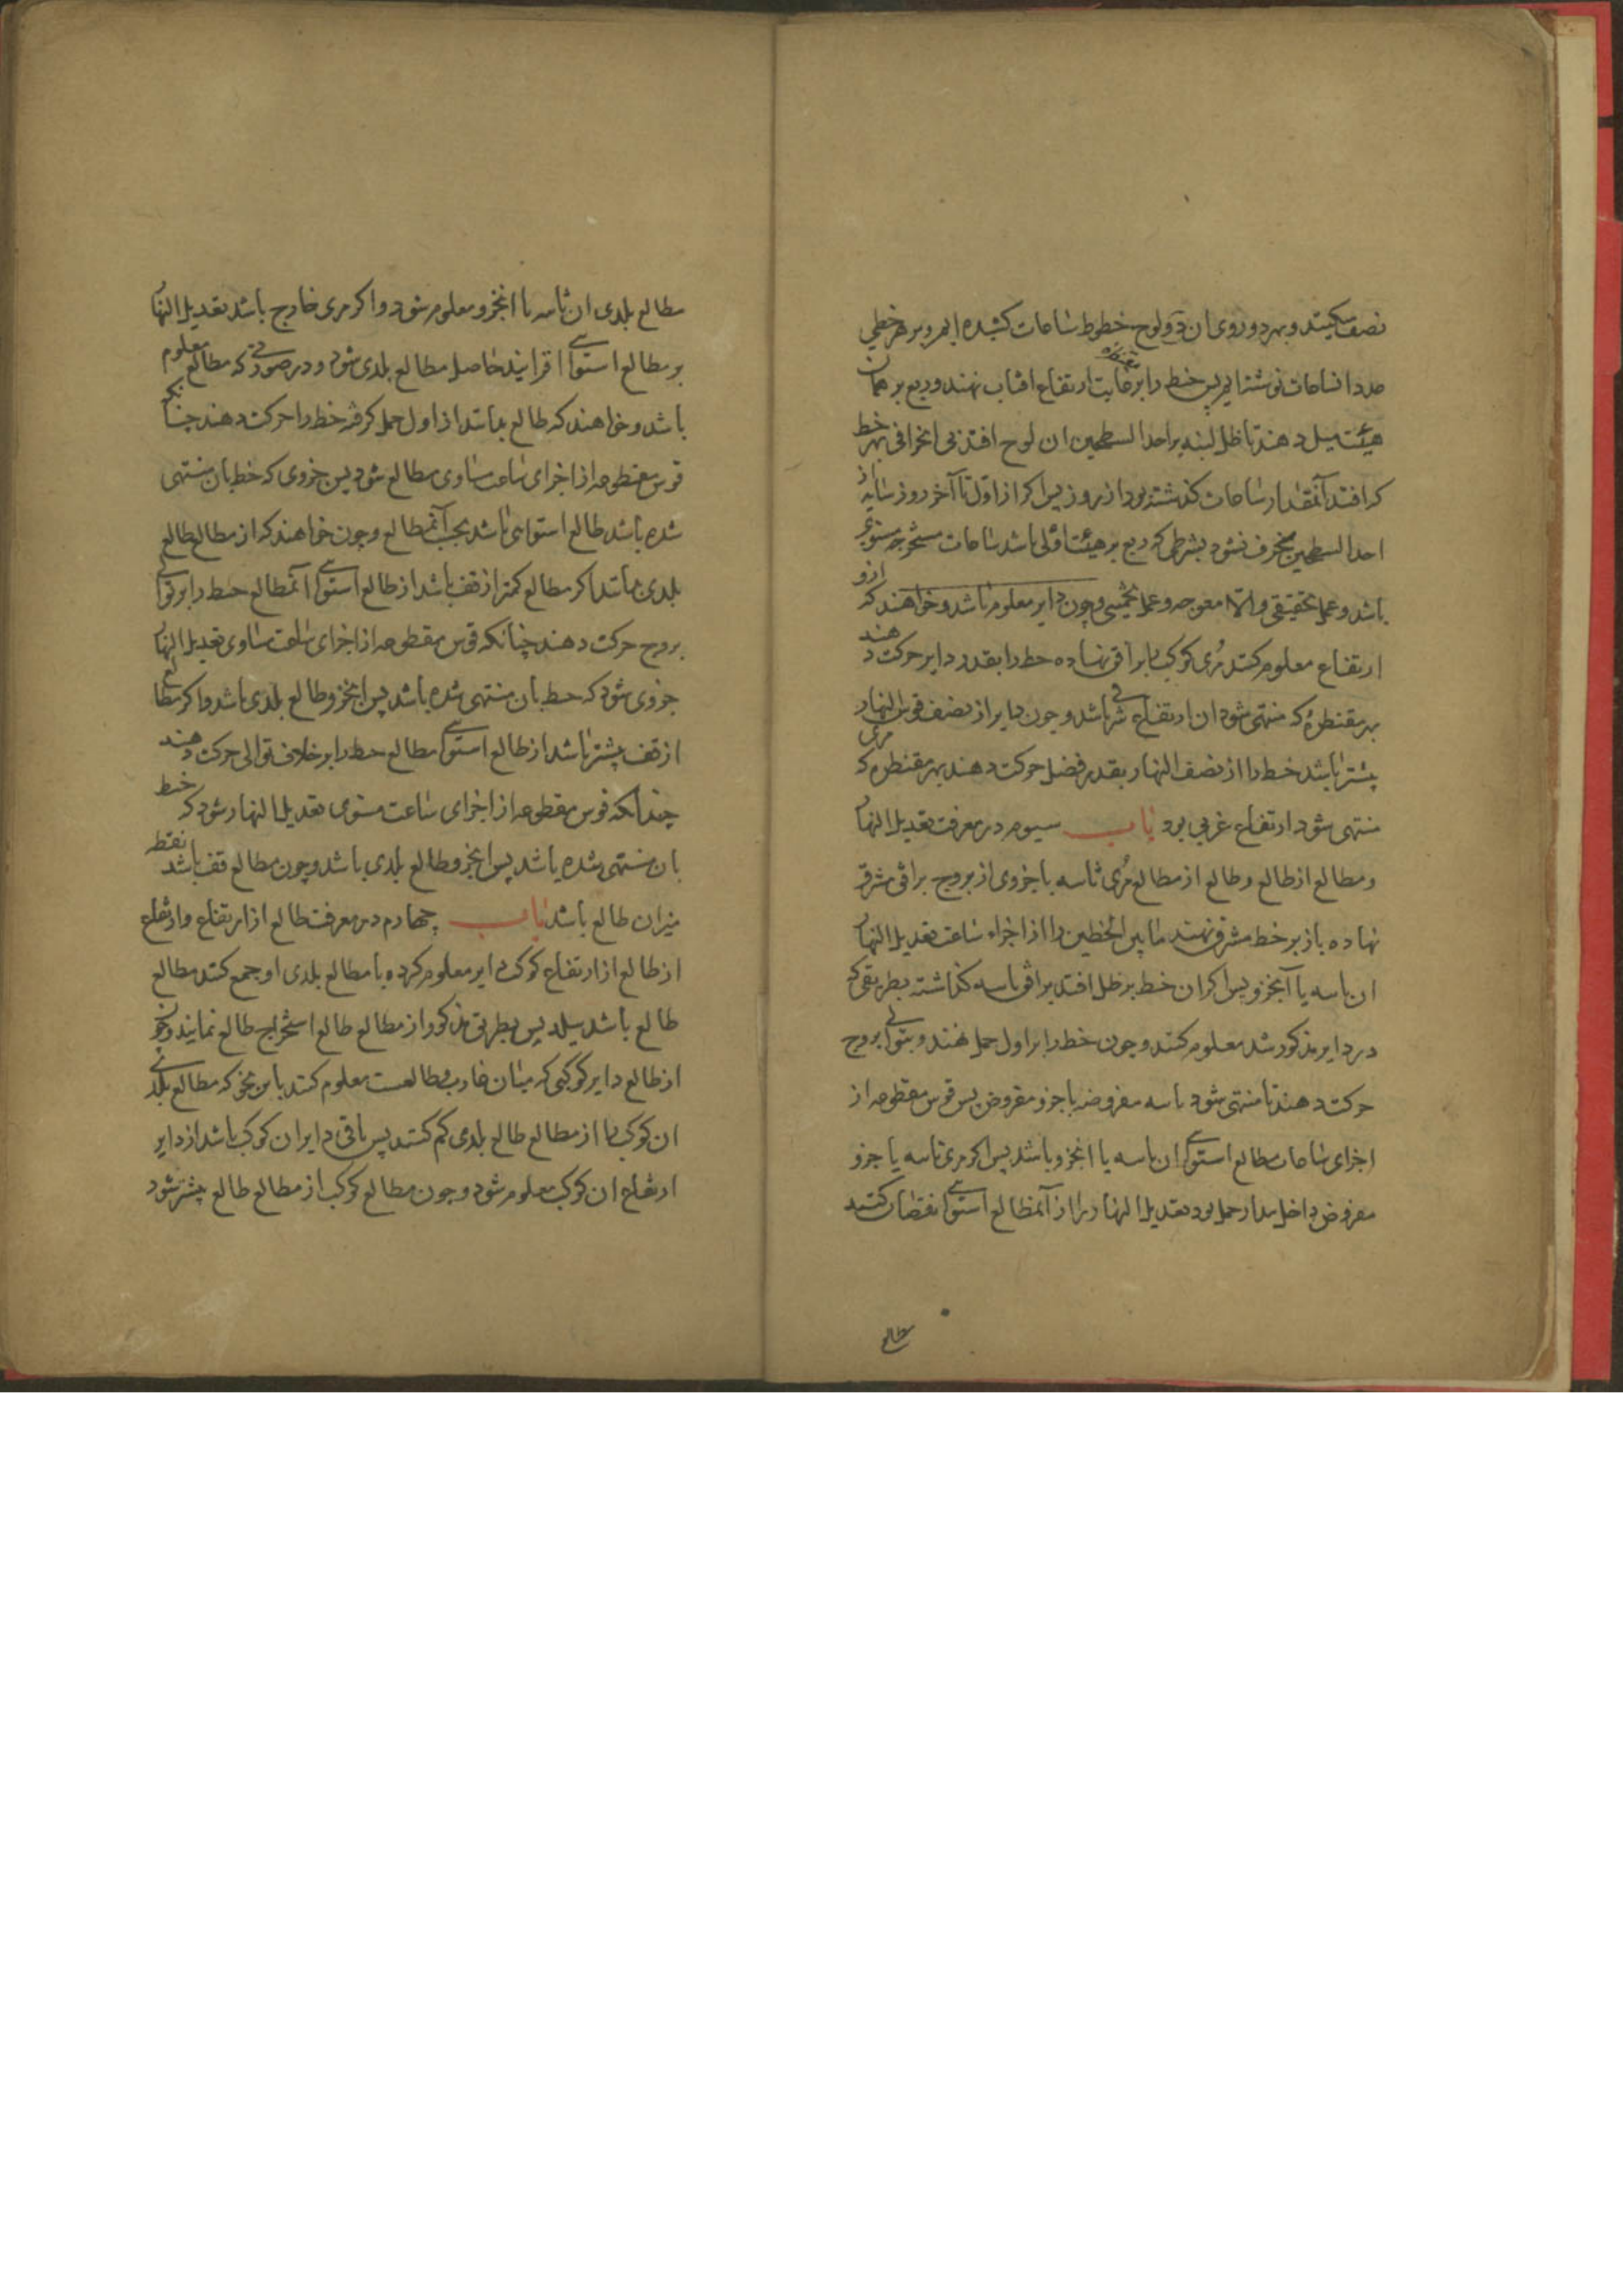 نصف میکند و بهر دو روی ان دو لوح خطوط ساعات کشیده ایم و بر هر خطی
عدد انساعات نوشته ایم پس خط را بر غایت ارتفاع افتاب نهند و ربع بر همان
هیئت میل دهند تا ظل لبنه بر احد السطحین ان لوح افتد بی انحرافی بهر خط
که افتد آنمقدار ساعات کذشته بود از روز پس اکر از اول تا آخر روز سایه از
احد السطحین منحرف نشود بشرطی که ربع بر هیئت اولی باشد ساعات مستخرجه مستویه
باشد و عمل تحقیقی و الا معوجه و عمل تخمینی و چون دایر معلوم باشد و خواهند که ازو
ارتفاع معلوم کنند مری کوکب را بر افق نهاده خط را بقدر دایر حرکت دهند
بهر مقنطره که منتهی شود ان ارتفاع شرقی باشد و چون دایر از نصف قوس النهار
بیشتر باشد خط را از نصف النهار بقدر فضل حرکت دهند بهر مقنطره که مری
منتهی شود ارتفاع غربی بود باب سیوم در معرفت تعدیل النهار
و مطالع از طالع و طالع از مطالع مری ثاسه یا جزوی از بروج بر افق مشرق
نهاده باز بر خط مشرق نهند ما بین الخطین را از اجزاء ساعت تعدیل النهار
ان ثاسه یا آنجزو پس اکر ان خط بر ظل افتد بر افق ثاسه کذاشته بطریقی که
در دایر مذکور شد معلوم کنند و چون خط را بر اول حمل نهند و بتوالی بروج
حرکت دهند تا منتهی شود ثاسه مفروضه یا جزو مفروض پس قوس مقطوعه از
اجزای ساعات مطالع استوایی ان ثاسه یا انجزو باشد پس اکر مری ثاسه یا جزو
مفروض داخل مدار حمل بود تعدیل النهار را از آنمطالع استوایی نقصان کنند
مطالع بلدی ان ثاسه یا انجزو معلوم شود و اکر مری خارج باشد تعدیل النهار
بر مطالع استوایی افزایند حاصل مطالع بلدی شود و در صورتی که مطالع معلوم
باشد و خواهند که طالع بدانند از اول حمل کرفته خط را حرکت دهند چنانکه
قوس مقطوعه از اجزای ساعت مساوی مطالع شود پس جزوی که خط بان منتهی
شده باشد طالع استوایی باشد بحسب آنمطالع و چون خواهند که از مطالع طالع
بلدی بدانند اکر مطالع کمتر از قف باشد از طالع استوایی آنمطالع خط را بر توالی
بروج حرکت دهند چنانکه قوس مقطوعه از اجزای ساعت مساوی تعدیل النهار
جزوی شود که خط بان منتهی شده باشد پس انجزو طالع بلدی باشد و اکر مطالع
از قف بیشتر باشد از طالع استوایی مطالع خط را بر خلاف توالی حرکت دهند
چندانکه قوس مقطوعه از اجزای ساعت مستوی تعدیل النهار شود که خط
بان منتهی شده باشد پس انجزو طالع بلدی باشد و چون مطالع قف باشد نقطه
میزان طالع باشد باب چهارم در معرفت طالع از ارتفاع و ارتفاع
از طالع از ارتفاع کوکب دایر معلوم کرده با مطالع بلدی او جمع کنند مطالع
طالع باشد پس بطریق مذکور از مطالع طالع استخراج طالع نمایند و چون
از طالع دایر کوکبی که میان غارب و طالعست معلوم کنند باین نحو که مطالع بلدی
ان کوکب را از مطالع طالع بلدی کم کنند پس باقی دایر ان کوکب باشد از دایر
ارتفاع ان کوکب معلوم شود و چون مطالع کوکب از مطالع طالع بیشتر شود
طالع